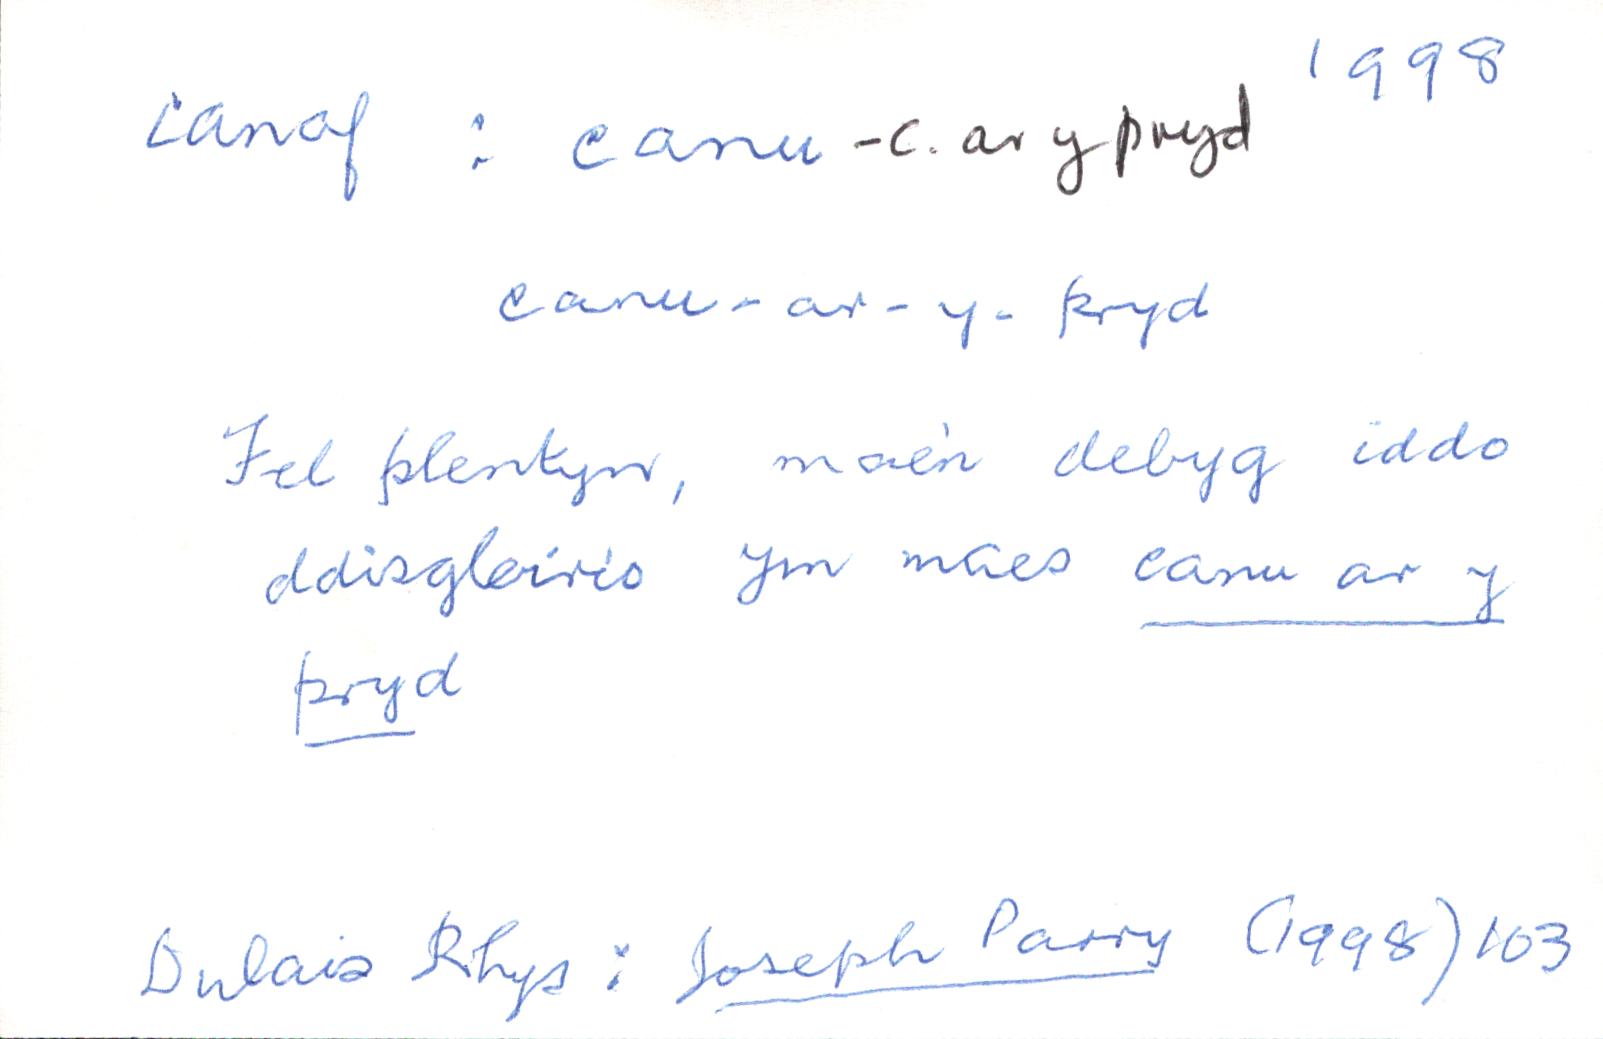 canaf : canu -c. ar y pryd 1998
canu-ar-y-pryd
Fel plentyn, mae'n debyg iddo
ddisgleirio ym maes canu ar y
pryd
Dulais Rhys : Joseph Parry (1998) 103